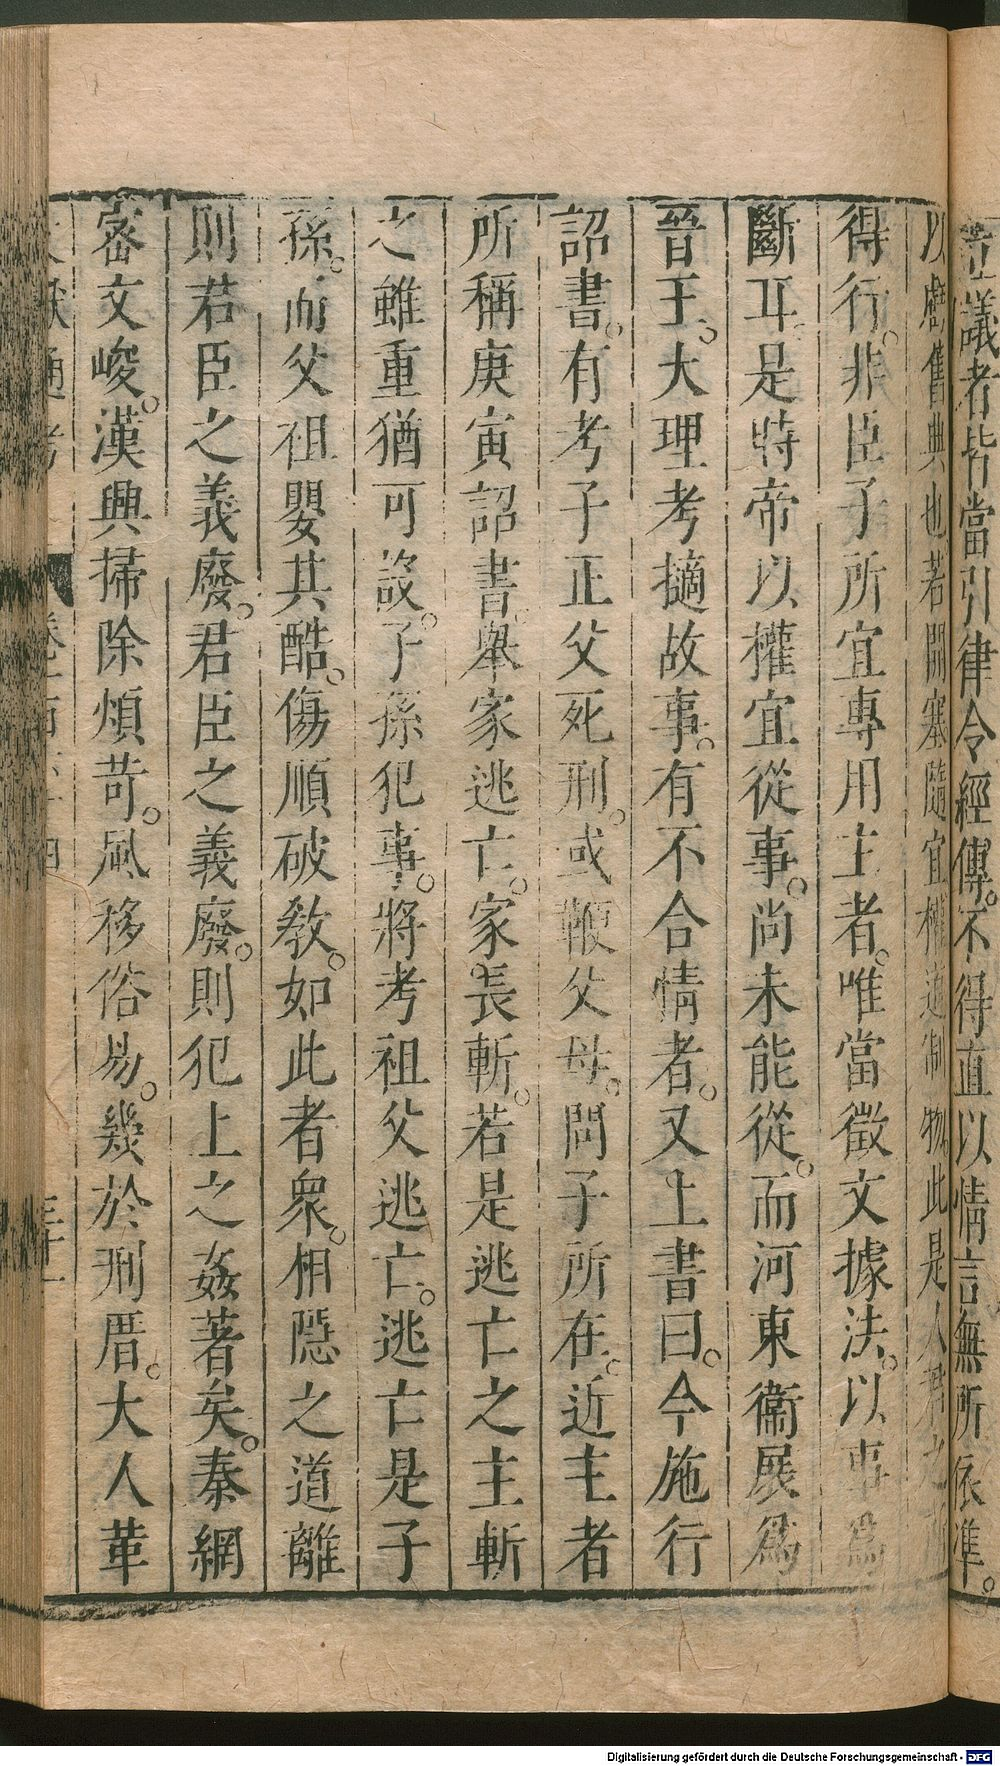 立議者皆當引律令經傳不得直以情言無所依準
以虧舊典也若開塞隨宜權道制物此是人君之所
得行非臣子所宜專用主者唯當徵文據法以事爲
斷耳是時帝以權宜從事尚未能從而河東衞展爲
晉王大理考擿故事有不合情者又上書曰今施行
詔書有考子正父死刑或鞭父母問子所在近主者
所稱庚寅詔書舉家逃亡家長斬若是逃亡之主斬
之雖重猶可設子孫犯事將考祖父逃亡逃亡是子
孫而父祖嬰其酷傷順破教如此者衆相隱之道離
則君臣之義廢君臣之義廢則犯上之姦著矣秦網
密文峻漢興掃除煩苛風移俗易幾於刑厝大人革
文獻通考 卷一百六十四 三十一
Digitalisierung gefördert durch die Deutsche Forschungsgemeinschaft - DFG